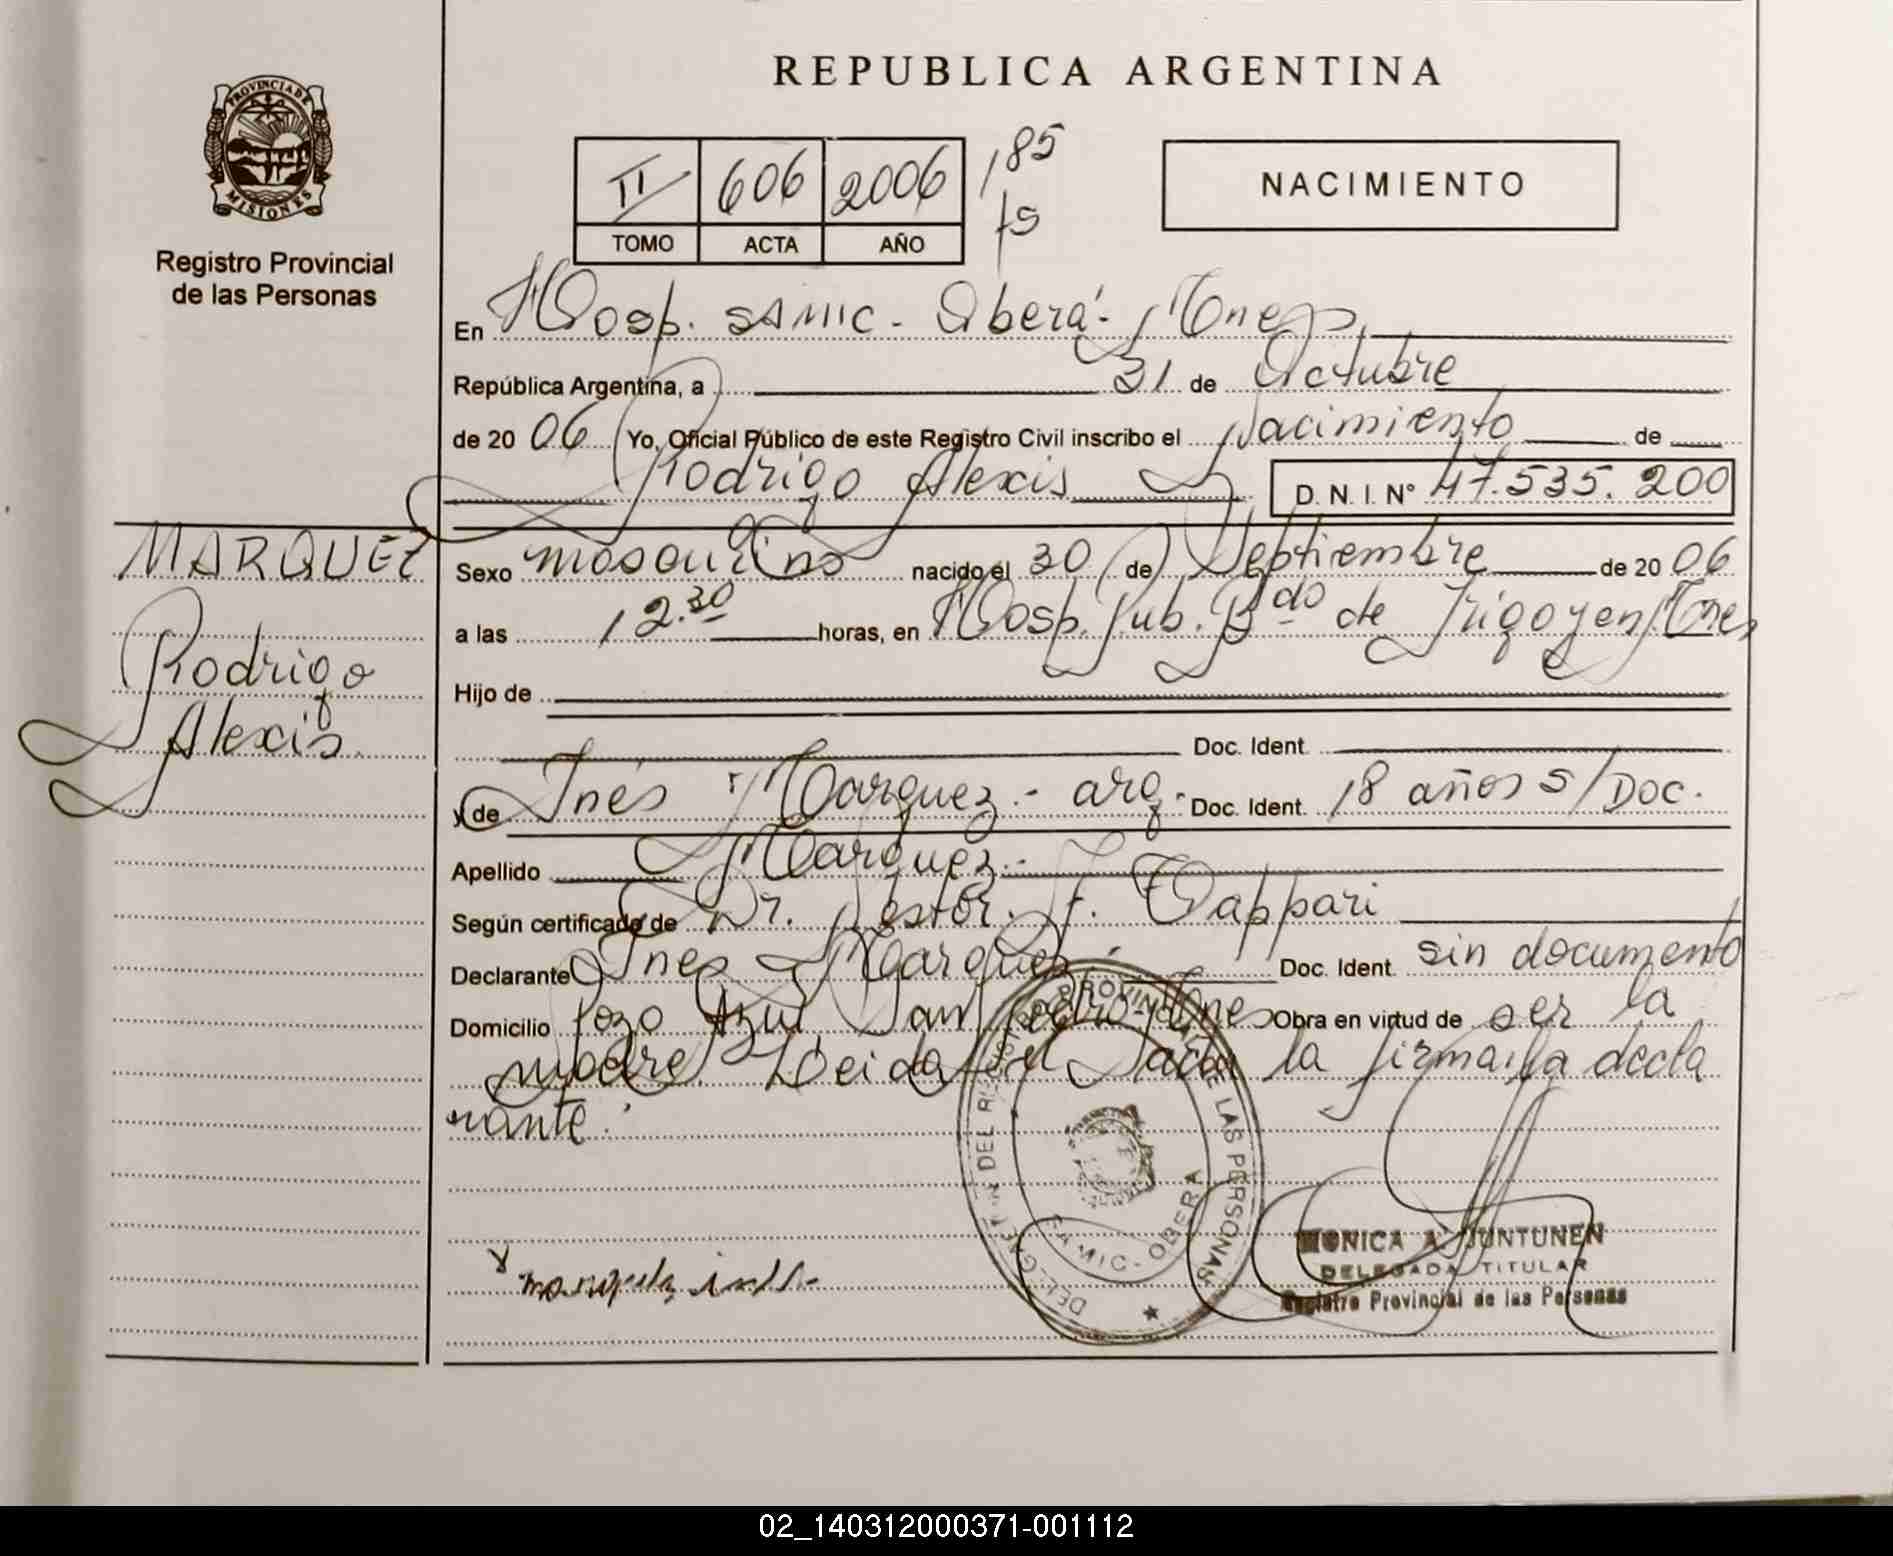 REPUBLICA ARGENTINA
PROVINCIA DE
MISIONES
Registro Provincial
de las Personas
II 606 2006 185
TOMO ACTA AÑO fs
NACIMIENTO
En Hosp. SAMIC - Oberá - Mnes,
República Argentina, a 31 de Octubre
de 20 06 Yo, Oficial Público de este Registro Civil inscribo el Nacimiento de
Rodrigo Alexis D. N. I. Nº 47.535.200
MARQUEZ
Rodrigo
Alexis
Sexo masculino nacido el 30 de Septiembre de 20 06
a las 12.30 horas, en Hosp. Pub. Bdo de Irigoyen, Mnes,
Hijo de
Doc. Ident.
y de Inés Marquez - arg. Doc. Ident. 18 años s/Doc.
Apellido Marquez
Según certificado de Dr. Nestor F. Cappari
Declarante Ines Marquez Doc. Ident. sin documento
Domicilio Pozo Azul, San Pedro, Mnes Obra en virtud de ser la
madre. Leida el acta la firma la decla
rante.
DEL REGISTRO PROVINCIAL DE LAS PERSONAS
SAMIC - OBERA
MONICA A. JUNTUNEN
DELEGADA TITULAR
Registro Provincial de las Personas
02_140312000371-001112